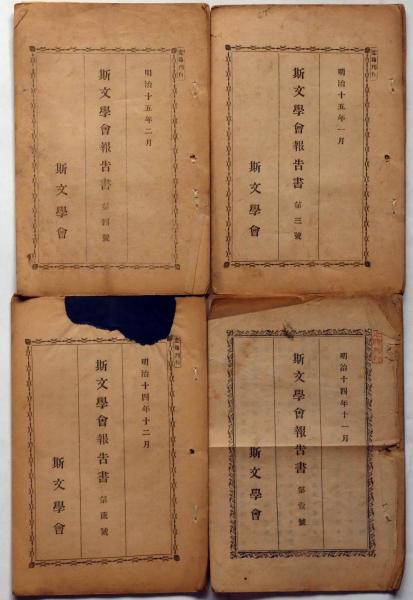 明治十五年一月
斯文學會報告書 第三號
斯文學會
明治十五年二月
斯文學會報告書 第四號
斯文學會
明治十四年十一月
斯文學會報告書 第壹號
斯文學會
明治十四年十二月
斯文學會報告書 第貳號
斯文學會